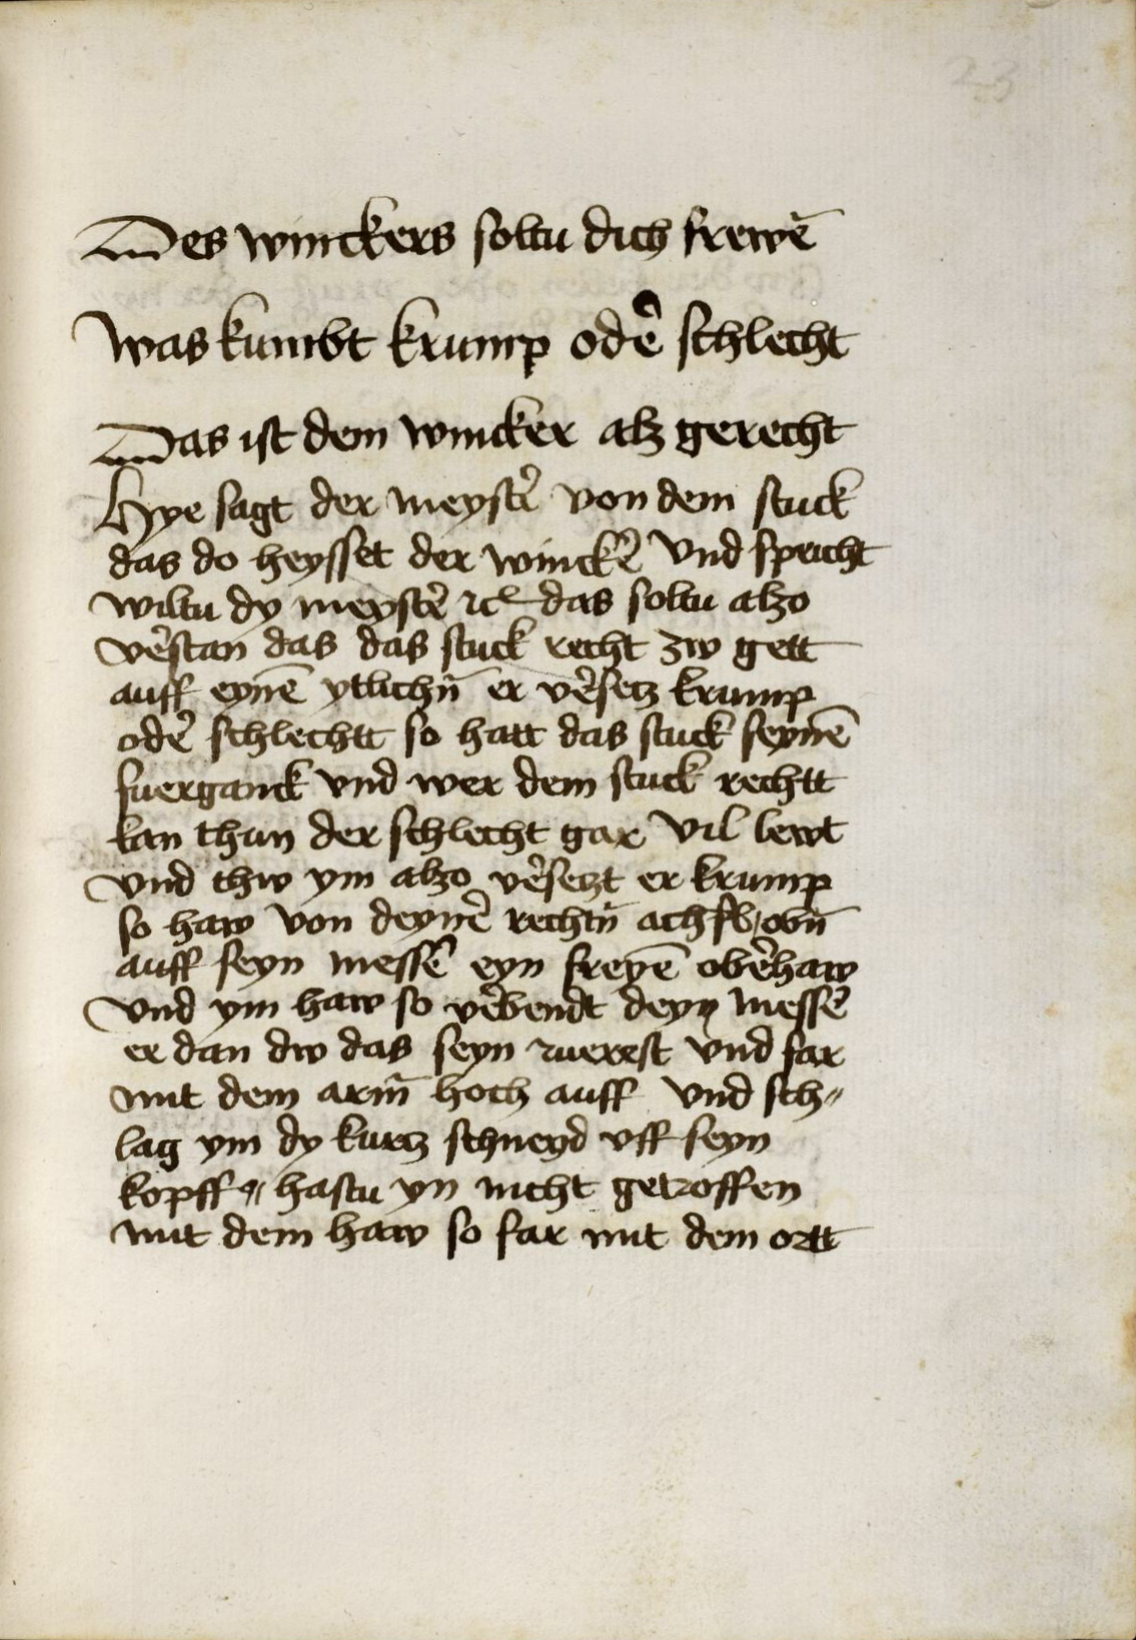 23
Des winckers soltu dich frewē
Was kumbt krump odẽ schlecht
Das ist dem wincker alz gerecht
Hye sagt der meystẽ von dem stuck
das do heysset der winckẽ vnd spricht
wiltu dy meystẽ ⁊c das soltu alzo
vẽstan das das stuck recht zw gett
auff eynē ytlichn̄ er vẽsetz krump
odẽ schlechtt so hatt das stuck seynē
fuerganck vnd wer dem stuck rechtt
kan thun der schlecht gar vil lewt
vnd thw ym alzo vẽsetzt er krump
so haw von deynẽ rechtn̄ achsl, obn̄
auff seyn messẽ eyn freyē obẽhaw
vnd ym haw so vẽbendt deyn messẽ
er dan dw das seyn ruerest vnd far
mit dem arm̄ hoch auff vnd sch〃
lag ym dy kurtz schneyd vff seyn
kopff 〃 hastu yn nicht getroffen
mit dem haw so far mit dem ortt